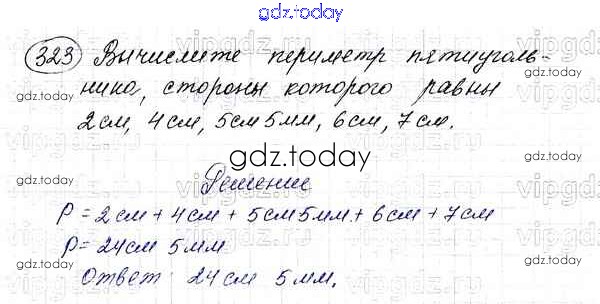 gdz.today
323 Вычислите периметр пятиуголь-
ника, стороны которого равны
2см, 4см, 5см 5мм, 6см, 7см.
gdz.today
Решение
P = 2см + 4см + 5см 5мм + 6см + 7см
P = 24см 5мм
Ответ: 24см 5мм.
gdz.today